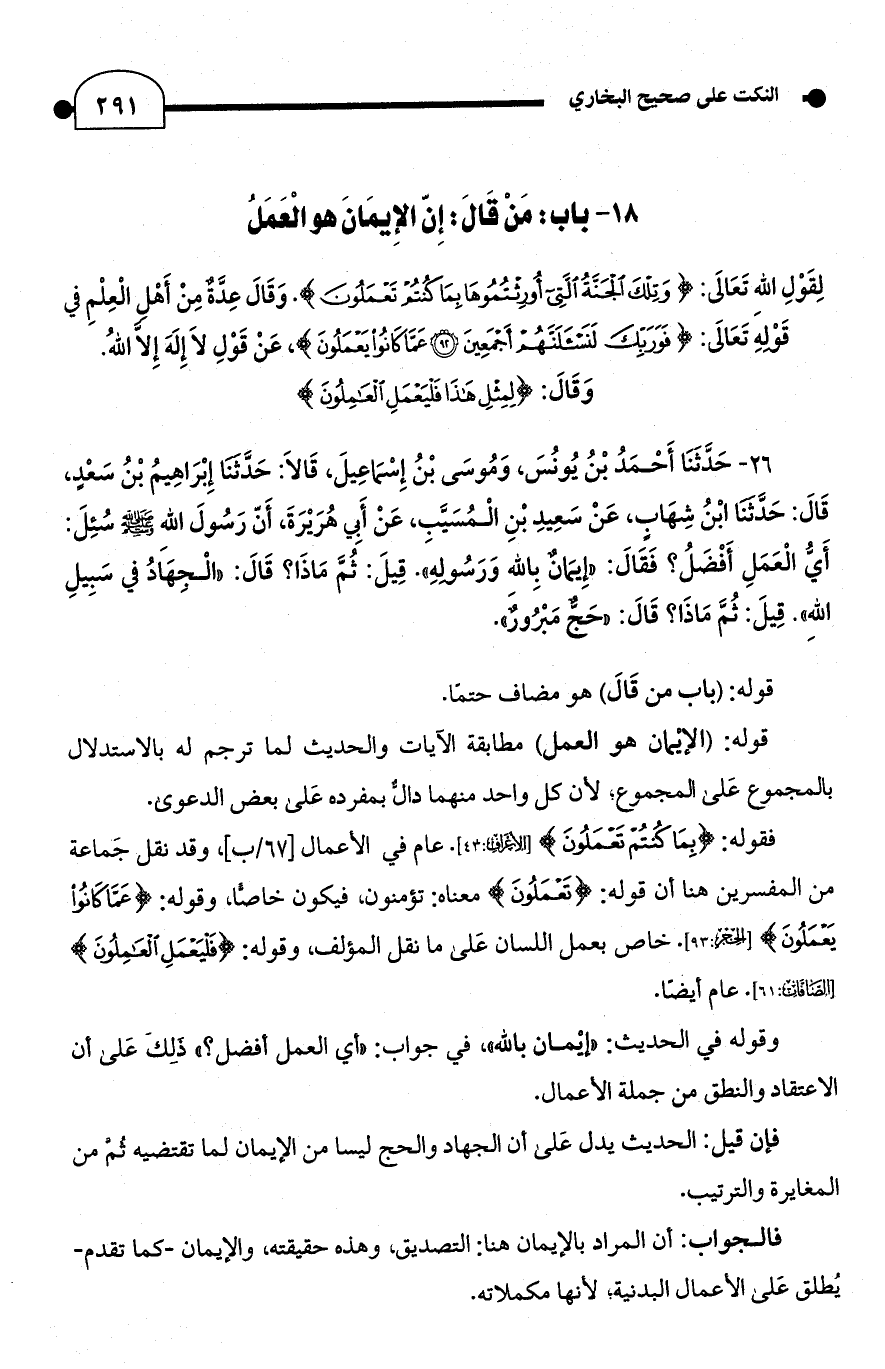 النكت على صحيح البخاري
٢٩١
١٨- باب: مَنْ قَالَ: إِنّ الإِيمَانَ هو الْعَمَلُ
لِقَوْلِ اللهِ تَعَالَى: ﴿ وَتِلْكَ الْجَنَّةُ الَّتِي أُورِثْتُمُوهَا بِمَا كُنْتُمْ تَعْمَلُونَ ﴾. وَقَالَ عِدَّةٌ مِنْ أَهْلِ الْعِلْمِ فِي
قَوْلِهِ تَعَالَى: ﴿ فَوَرَبِّكَ لَنَسْـَٔلَنَّهُمْ أَجْمَعِينَ ٩٢ عَمَّا كَانُوا يَعْمَلُونَ ﴾، عَنْ قَوْلِ لاَ إِلَهَ إِلاَّ اللهُ.
وَقَالَ: ﴿ لِمِثْلِ هَٰذَا فَلْيَعْمَلِ الْعَامِلُونَ ﴾
٢٦- حَدَّثَنَا أَحْمَدُ بْنُ يُونُسَ، وَمُوسَى بْنُ إِسْمَاعِيلَ، قَالاَ: حَدَّثَنَا إِبْرَاهِيمُ بْنُ سَعْدٍ،
قَالَ: حَدَّثَنَا ابْنُ شِهَابٍ، عَنْ سَعِيدِ بْنِ الْمُسَيَّبِ، عَنْ أَبِي هُرَيْرَةَ، أَنّ رَسُولَ اللهِ ﷺ سُئِلَ:
أَيُّ الْعَمَلِ أَفْضَلُ؟ فَقَالَ: «إِيمَانٌ بِاللهِ وَرَسُولِهِ». قِيلَ: ثُمَّ مَاذَا؟ قَالَ: «الْجِهَادُ فِي سَبِيلِ
اللهِ». قِيلَ: ثُمَّ مَاذَا؟ قَالَ: «حَجٌّ مَبْرُورٌ».
قوله: (باب من قَالَ) هو مضاف حتمًا.
قوله: (الإيْمان هو العمل) مطابقة الآيات والحديث لما ترجم له بالاستدلال
بالمجموع عَلىٰ المجموع؛ لأن كل واحد منهما دالٌ بمفرده عَلىٰ بعض الدعوىٰ.
فقوله: ﴿ بِمَا كُنْتُمْ تَعْمَلُونَ ﴾ [الأعراف: ٤٣]. عام في الأعمال [٦٧/ب]، وقد نقل جَماعة
من المفسرين هنا أن قوله: ﴿ تَعْمَلُونَ ﴾ معناه: تؤمنون، فيكون خاصًّا، وقوله: ﴿ عَمَّا كَانُوا
يَعْمَلُونَ ﴾ [الحجر: ٩٣]. خاص بعمل اللسان عَلىٰ ما نقل المؤلف، وقوله: ﴿ فَلْيَعْمَلِ الْعَامِلُونَ ﴾
[الصافات: ٦١]. عام أيضًا.
وقوله في الحديث: «إيْمان بالله»، في جواب: «أي العمل أفضل؟» ذَلِكَ عَلىٰ أن
الاعتقاد والنطق من جملة الأعمال.
فإن قيل: الحديث يدل عَلىٰ أن الجهاد والحج ليسا من الإيمان لما تقتضيه ثُمَّ من
المغايرة والترتيب.
فالجواب: أن المراد بالإيمان هنا: التصديق، وهذه حقيقته، والإيمان -كما تقدم-
يُطلق عَلىٰ الأعمال البدنية؛ لأنها مكملاته.